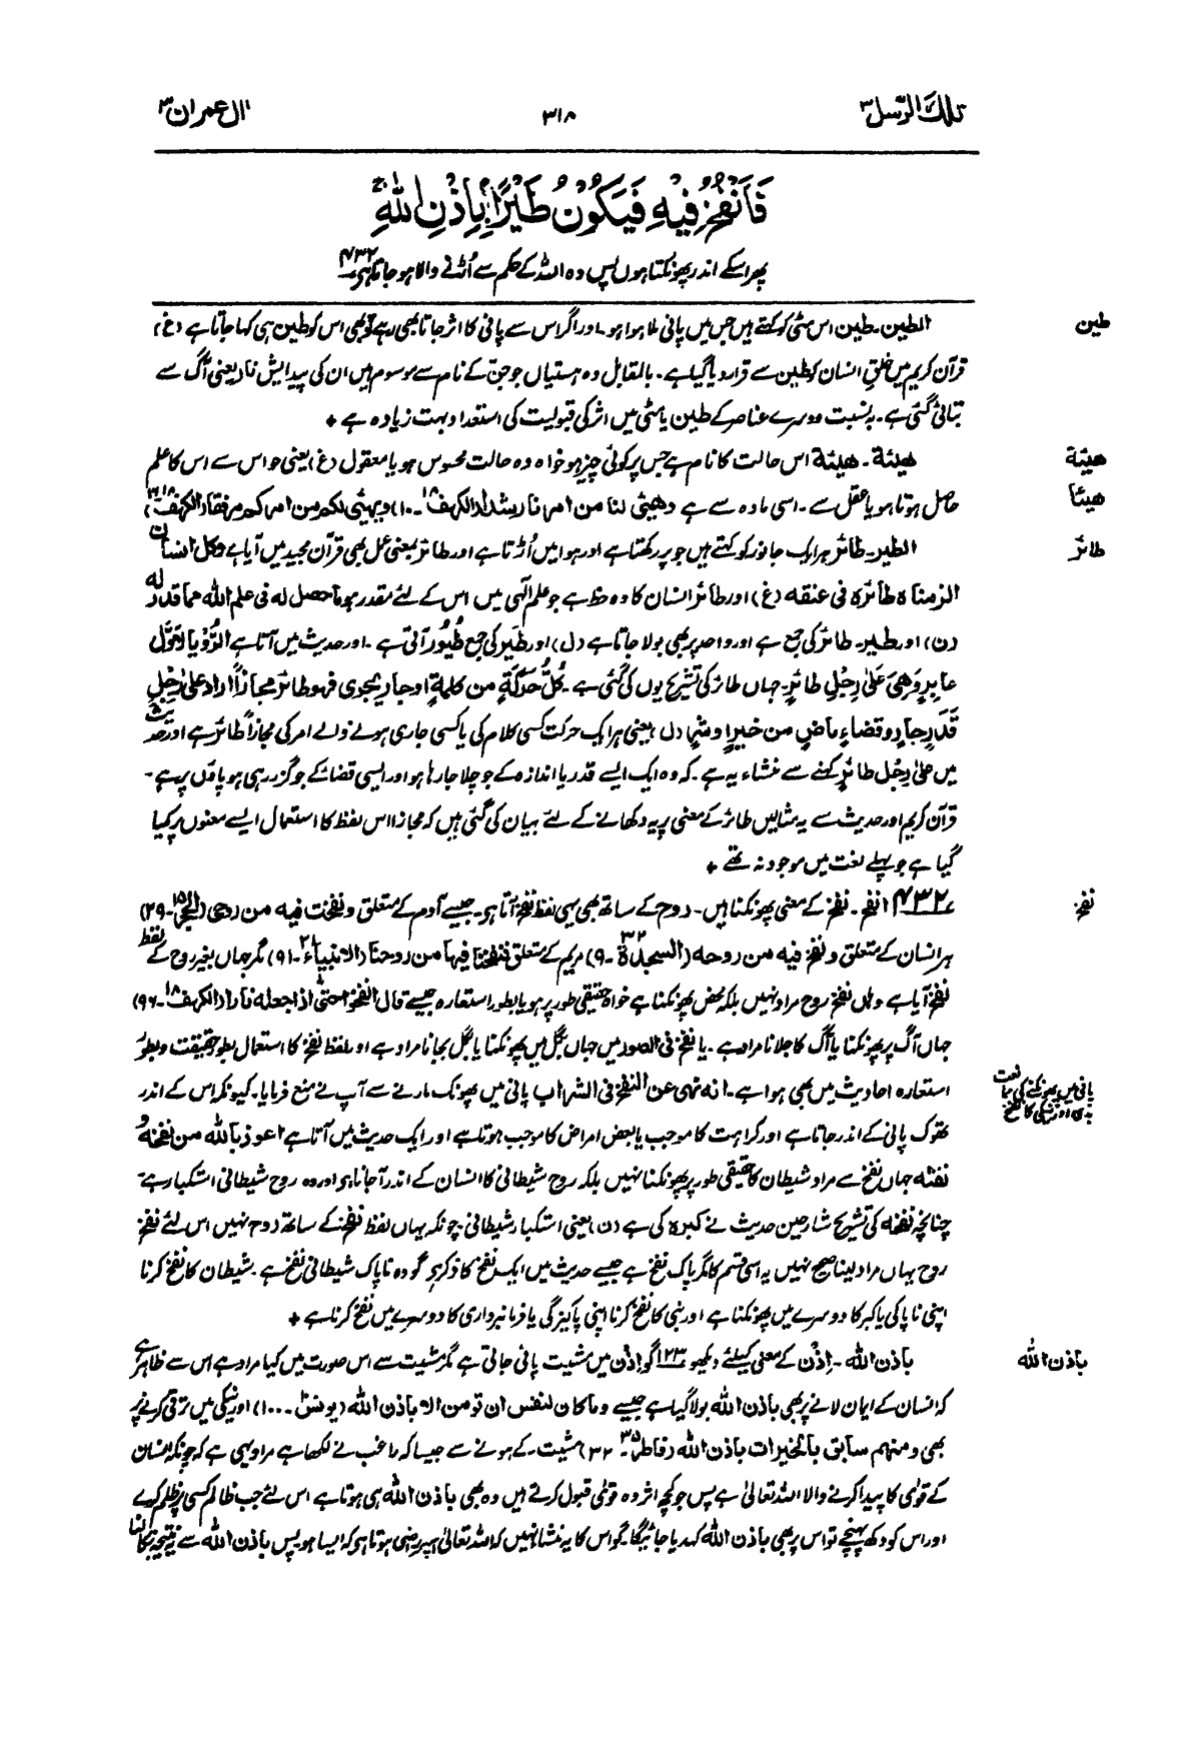 تلك الرسل ۳
۳۱۸
ال عمران ۳
فَاَنْفُخُ فِيْهِ فَيَكُوْنُ طَيْرًۢا بِاِذْنِ اللّٰهِ ۚ
پھر اسکے اندر پھونکتا ہوں پس وہ اللہ کے حکم سے اُڑنے والا ہو جاتا ہی۔ ۴۳۲
طین
الطین۔ طین اس مٹی کو کہتے ہیں جس میں پانی ملا ہوا ہو۔ اور اگر اس سے پانی کا اثر جاتا بھی رہے تو بھی اس کو طین ہی کہا جاتا ہے (غ)
قرآن کریم میں خلقِ انسان کو طین سے قرار دیا گیا ہے۔ بالمقابل وہ ہستیاں جو جنّ کے نام سے موسوم ہیں ان کی پیدایش نار یعنی آگ سے
بتائی گئی ہے۔ بہ نسبت دوسرے عناصر کے طین یا مٹی میں اثر کی قبولیت کی استعداد بہت زیادہ ہے +
هیئة
هیئة۔ هیئة اس حالت کا نام ہے جس پر کوئی چیز ہو خواہ وہ حالت محسوس ہو یا معقول (غ) یعنی حواس سے اس کا علم
هیئأ
حاصل ہوتا ہو یا عقل سے۔ اسی مادہ سے ہے وهیئ لنا من امرنا رشدا (الکهف ۱۸۔۱۰) ویهیئ لکم من امرکم مرفقا (الکهف ۱۸۔۱۶)
طائر
الطیر۔ طائر ہر ایک جانور کو کہتے ہیں جو پر رکھتا ہے اور ہوا میں اُڑتا ہے اور طائر بمعنی عمل بھی قرآن مجید میں آیا ہے وکل انسان
الزمناه طائره فی عنقه (غ) اور طائر انسان کا وہ حظ ہے جو علم الٰہی میں اس کے لئے مقدر ہو ما حصل له فی علم الله مما قدر له
(ن) اور طیر۔ طائر کی جمع ہے اور واحد پر بھی بولا جاتا ہے (ل) اور طَیر کی جمع طُیُور آتی ہے۔ اور حدیث میں آتا ہے الرُّؤیا لِاَوَّل
عابِرٍ وَهِیَ عَلیٰ رِجْلِ طائرٍ۔ جہاں طائر کی تشریح یوں کی گئی ہے۔ کُلُّ حَرَکَةٍ من کلمةٍ او جارٍ یجری فهو طائر مجازاً اراد علیٰ رِجْلِ
قَدَرٍ جارٍ و قضاءٍ ماضٍ من خیرٍ او شرٍ (ل) یعنی ہر ایک حرکت کسی کلام کی یا کسی جاری ہونے والے امر کی مجازاً طائر ہے اور حدیث
میں علیٰ رِجْل طائرٍ کہنے سے منشاء یہ ہے۔ کہ وہ ایک ایسے قدر یا اندازہ کے جو چلا جا رہا ہو اور ایسی قضا کے جو گزر رہی ہو پاؤں پر ہے۔
قرآن کریم اور حدیث سے یہ مثالیں طائر کے معنی پر یہ دکھانے کے لئے بیان کی گئی ہیں کہ مجازاً اس لفظ کا استعمال ایسے معنوں پر کیا
گیا ہے جو پہلے لغت میں موجود نہ تھے +
نفخ
۴۳۲ انفخ۔ نفخ کے معنی پھونکنا ہیں۔ روح کے ساتھ بھی یہی لفظ نفخ آتا ہے۔ جیسے آدم کے متعلق ونفخت فیه من روحی (الحجر ۱۵۔۲۹)
ہر انسان کے متعلق ونفخ فیه من روحه (السجدة ۳۲۔۹) مریم کے متعلق فنفخنا فیها من روحنا (الانبیاء ۲۱۔۹۱) مگر جہاں بغیر روح کے لفظ
نفخ آیا ہے وہاں نفخ روح مراد نہیں بلکہ محض پھونکنا ہے خواہ حقیقی طور پر ہو یا بطور استعارہ جیسے قال انفخوا حتیٰ اذا جعله نارا (الکهف ۱۸۔۹۶)
جہاں آگ پر پھونکنا یا آگ کا جلانا مراد ہے۔ یا نفخ فی الصور میں جہاں بگل میں پھونکنا یا بگل بجانا مراد ہے اور لفظ نفخ کا استعمال بطور حقیقت و بطور
پانی میں پھونکنے کی ممانعت
بدی اور نیکی کا نفخ
استعارہ احادیث میں بھی ہوا ہے۔ انه نهی عن النفخ فی الشراب پانی میں پھونک مارنے سے آپ نے منع فرمایا۔ کیونکہ اس کے اندر
تھوک پانی کے اندر جاتا ہے اور کراہت کا موجب یا بعض امراض کا موجب ہوتا ہے اور ایک حدیث میں آتا ہے اعوذ بالله من نفخه و
نفثه جہاں نفخ سے مراد شیطان کا حقیقی طور پر پھونکنا نہیں بلکہ روح شیطانی کا انسان کے اندر آجانا ہے اور وہ روح شیطانی استکبار ہے۔
چنانچہ نفخه کی تشریح شارحین حدیث نے کبره کی ہے (ن) یعنی استکبار شیطانی۔ چونکہ یہاں لفظ نفخ کے ساتھ روح نہیں اس لئے نفخ
روح یہاں مراد لینا صحیح نہیں یہ اسی قسم کا مگر پاک نفخ ہے جیسے حدیث میں ایک نفخ کا ذکر ہے گو وہ ناپاک شیطانی نفخ ہے۔ شیطان کا نفخ کرنا
اپنی ناپاکی یا کبر کا دوسرے میں پھونکنا ہے اور نبی کا نفخ کرنا اپنی پاکیزگی یا فرمانبرداری کا دوسرے میں نفخ کرنا ہے +
باذن الله
باذن الله۔ اِذْن کے معنی کیلئے دیکھو ۱۲۳ گو اِذْن میں مشیت پائی جاتی ہے مگر مشیت سے اس صورت میں کیا مراد ہے اس سے ظاہر ہے
کہ انسان کے ایمان لانے پر بھی باذن الله بولا گیا ہے جیسے وما کان لنفس ان تومن الا باذن الله (یونس ۱۰۔۱۰۰) اور نیکی میں ترقی کرنے پر
بھی ومنهم سابق بالخیرات باذن الله (فاطر ۳۵۔۳۲) مشیت کے ہونے سے جیسا کہ راغب نے لکھا ہے مراد یہی ہے کہ چونکہ انسان
کے قویٰ کا پیدا کرنے والا اللہ تعالیٰ ہے پس جو کچھ اثر وہ قویٰ قبول کرتے ہیں وہ بھی باذن الله ہی ہوتا ہے اس لئے جب ظالم کسی پر ظلم کرے
اور اس کو دکھ پہنچے تو اس پر بھی باذن الله کہدیا جائیگا۔ گو اس کا یہ منشا نہیں کہ اللہ تعالیٰ اس پر راضی ہوتا ہو کہ ایسا ہو پس باذن الله سے یہ نتیجہ نکالنا